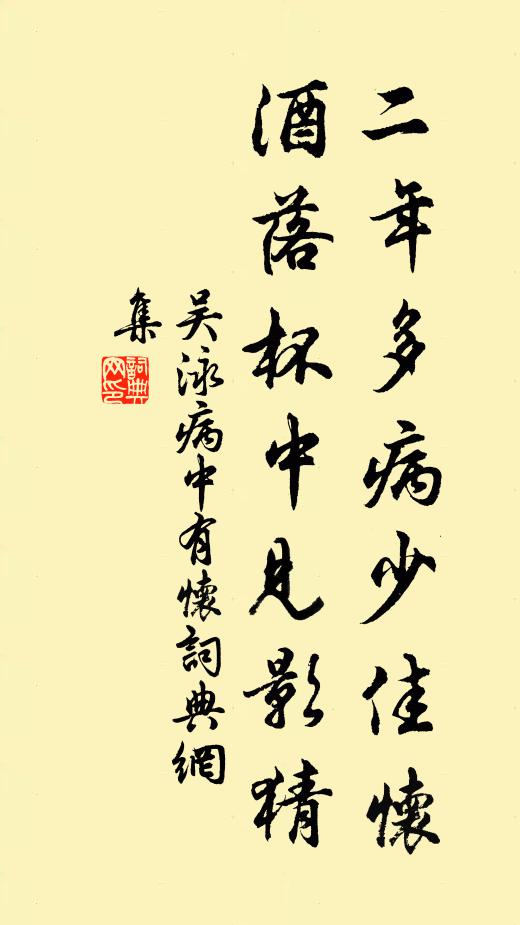 二年多病少佳懷
酒落杯中見影猜
吳泳病中有懷詞典網
集
詞典
网印